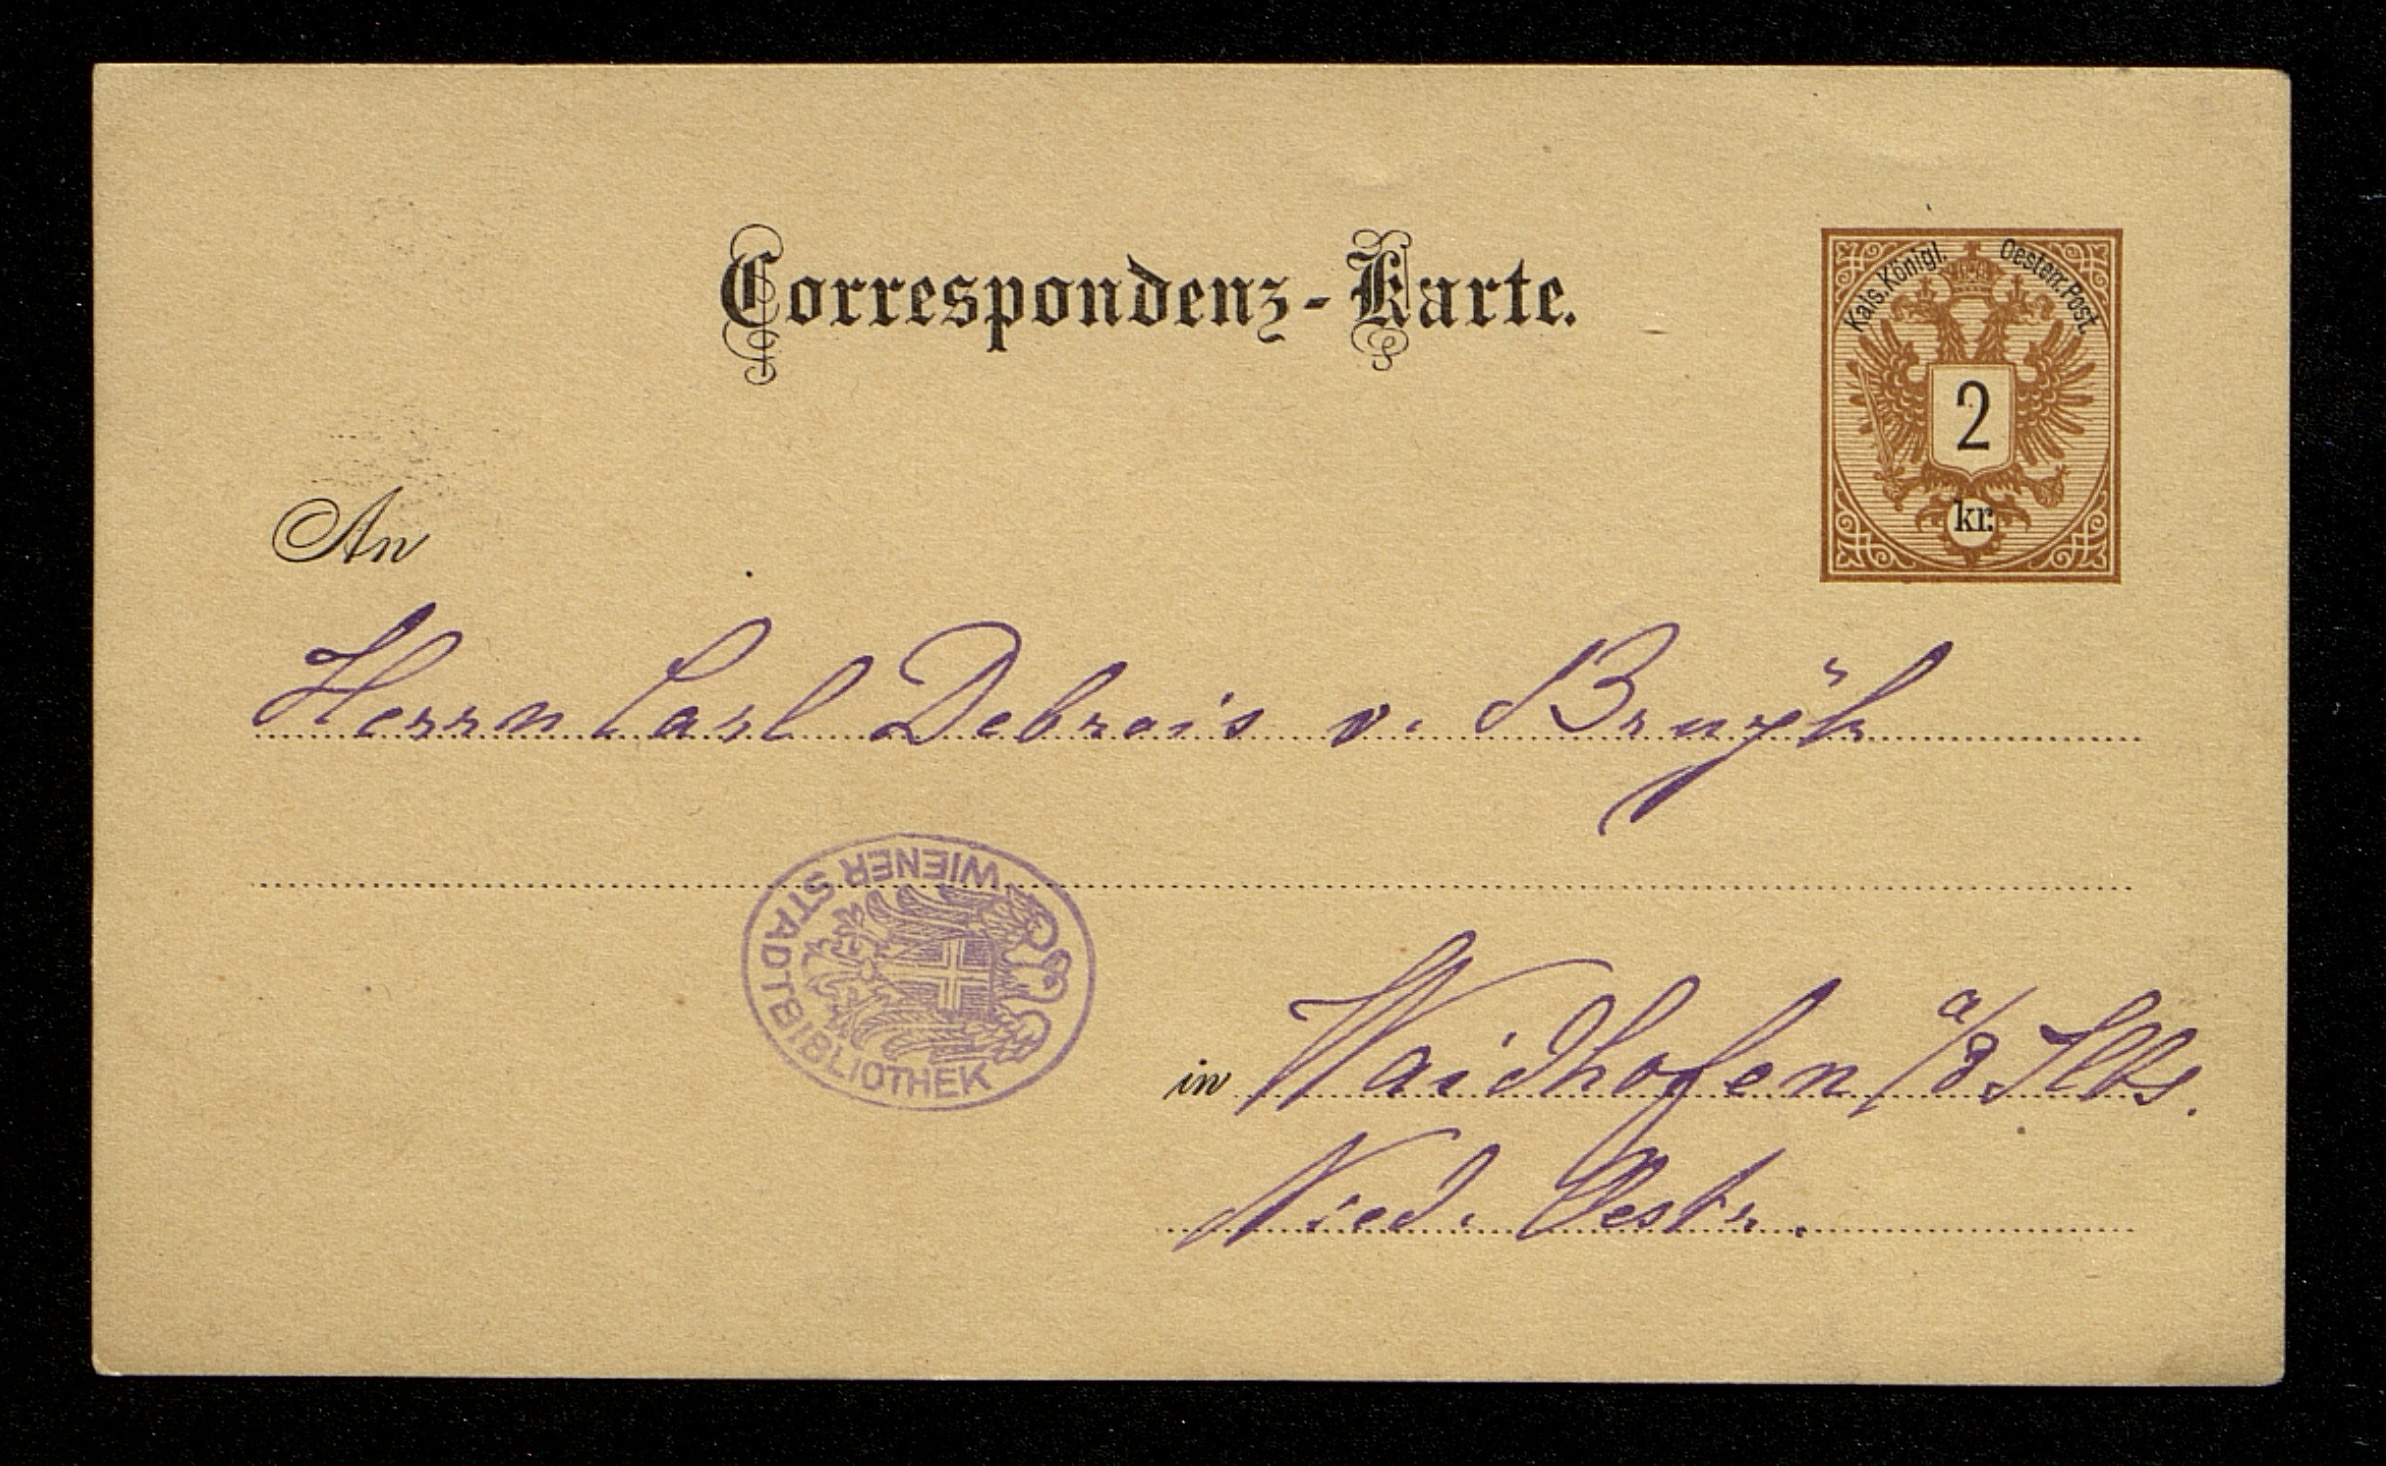 Correspondenz-Karte.
Kais. Königl. Oesterr. Post.
2
kr.
An
Herrn Carl Debrois v. Bruÿk
WIENER STADTBIBLIOTHEK
in Waidhofen a/d Ybbs.
Nied. Oestr.